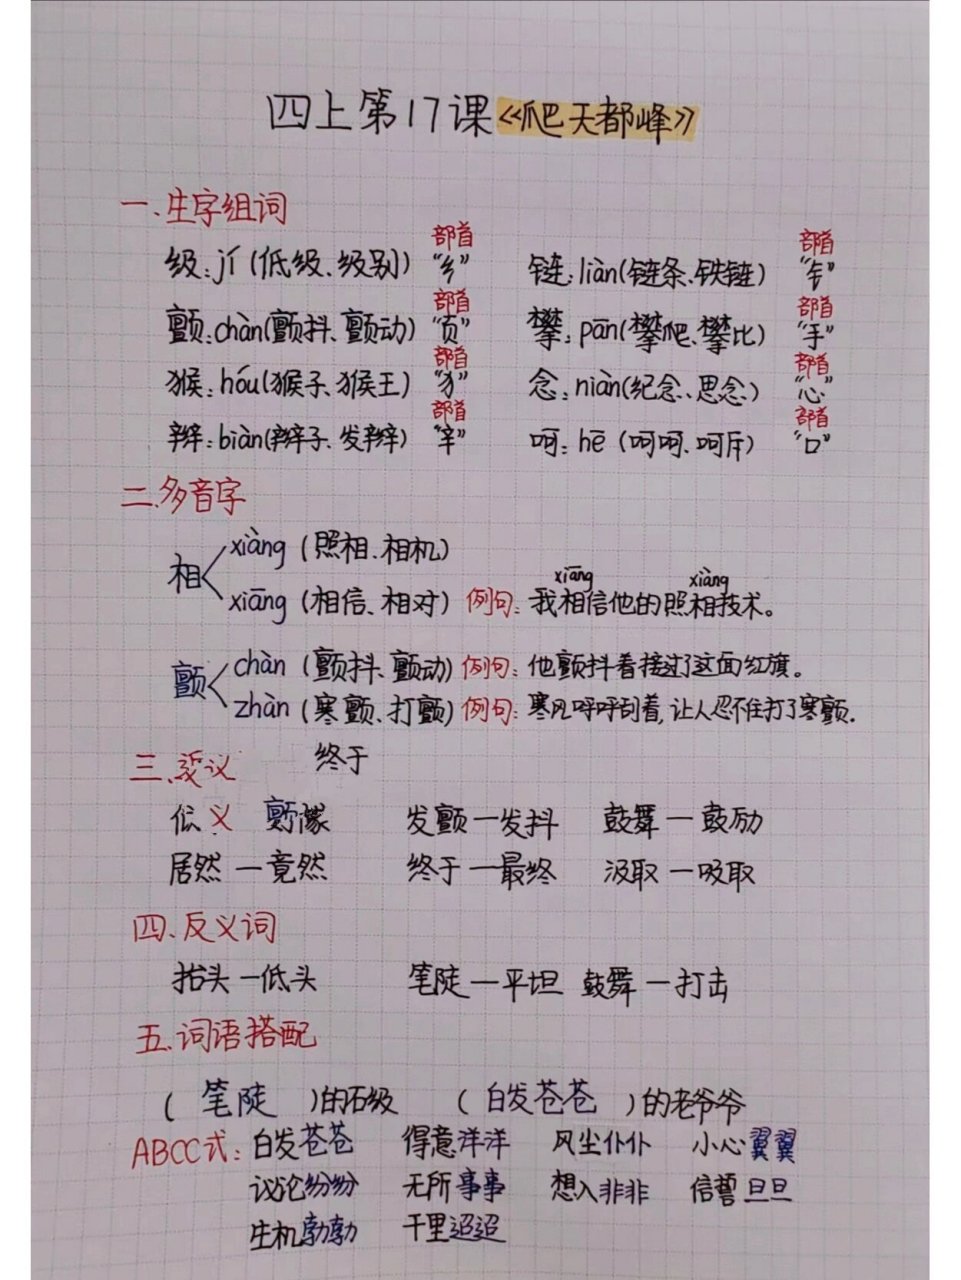 四上第17课《爬天都峰》
一、生字组词
部首 部首
级:jí(低级、级别)"纟" 链:liàn(链条、铁链)"钅"
部首 部首
颤:chàn(颤抖、颤动)"页" 攀:pān(攀爬、攀比)"手"
部首 部首
猴:hóu(猴子、猴王)"犭" 念:niàn(纪念、思念)"心"
部首 部首
辫:biàn(辫子、发辫)"辛" 呵:hē(呵呵、呵斥)"口"
二、多音字
相 xiàng(照相、相机)
xiāng xiàng
xiāng(相信、相对)例句:我相信他的照相技术。
颤 chàn(颤抖、颤动)例句:他颤抖着接过了这面红旗。
zhàn(寒颤、打颤)例句:寒风呼呼刮着,让人忍不住打了寒颤。
三、 终于
义 颤 发颤—发抖 鼓舞—鼓励
居然—竟然 终于—最终 汲取—吸取
四、反义词
抬头—低头 笔陡—平坦 鼓舞—打击
五、词语搭配
(笔陡)的石级 (白发苍苍)的老爷爷
ABCC式:白发苍苍 得意洋洋 风尘仆仆 小心翼翼
议论纷纷 无所事事 想入非非 信誓旦旦
生机勃勃 千里迢迢